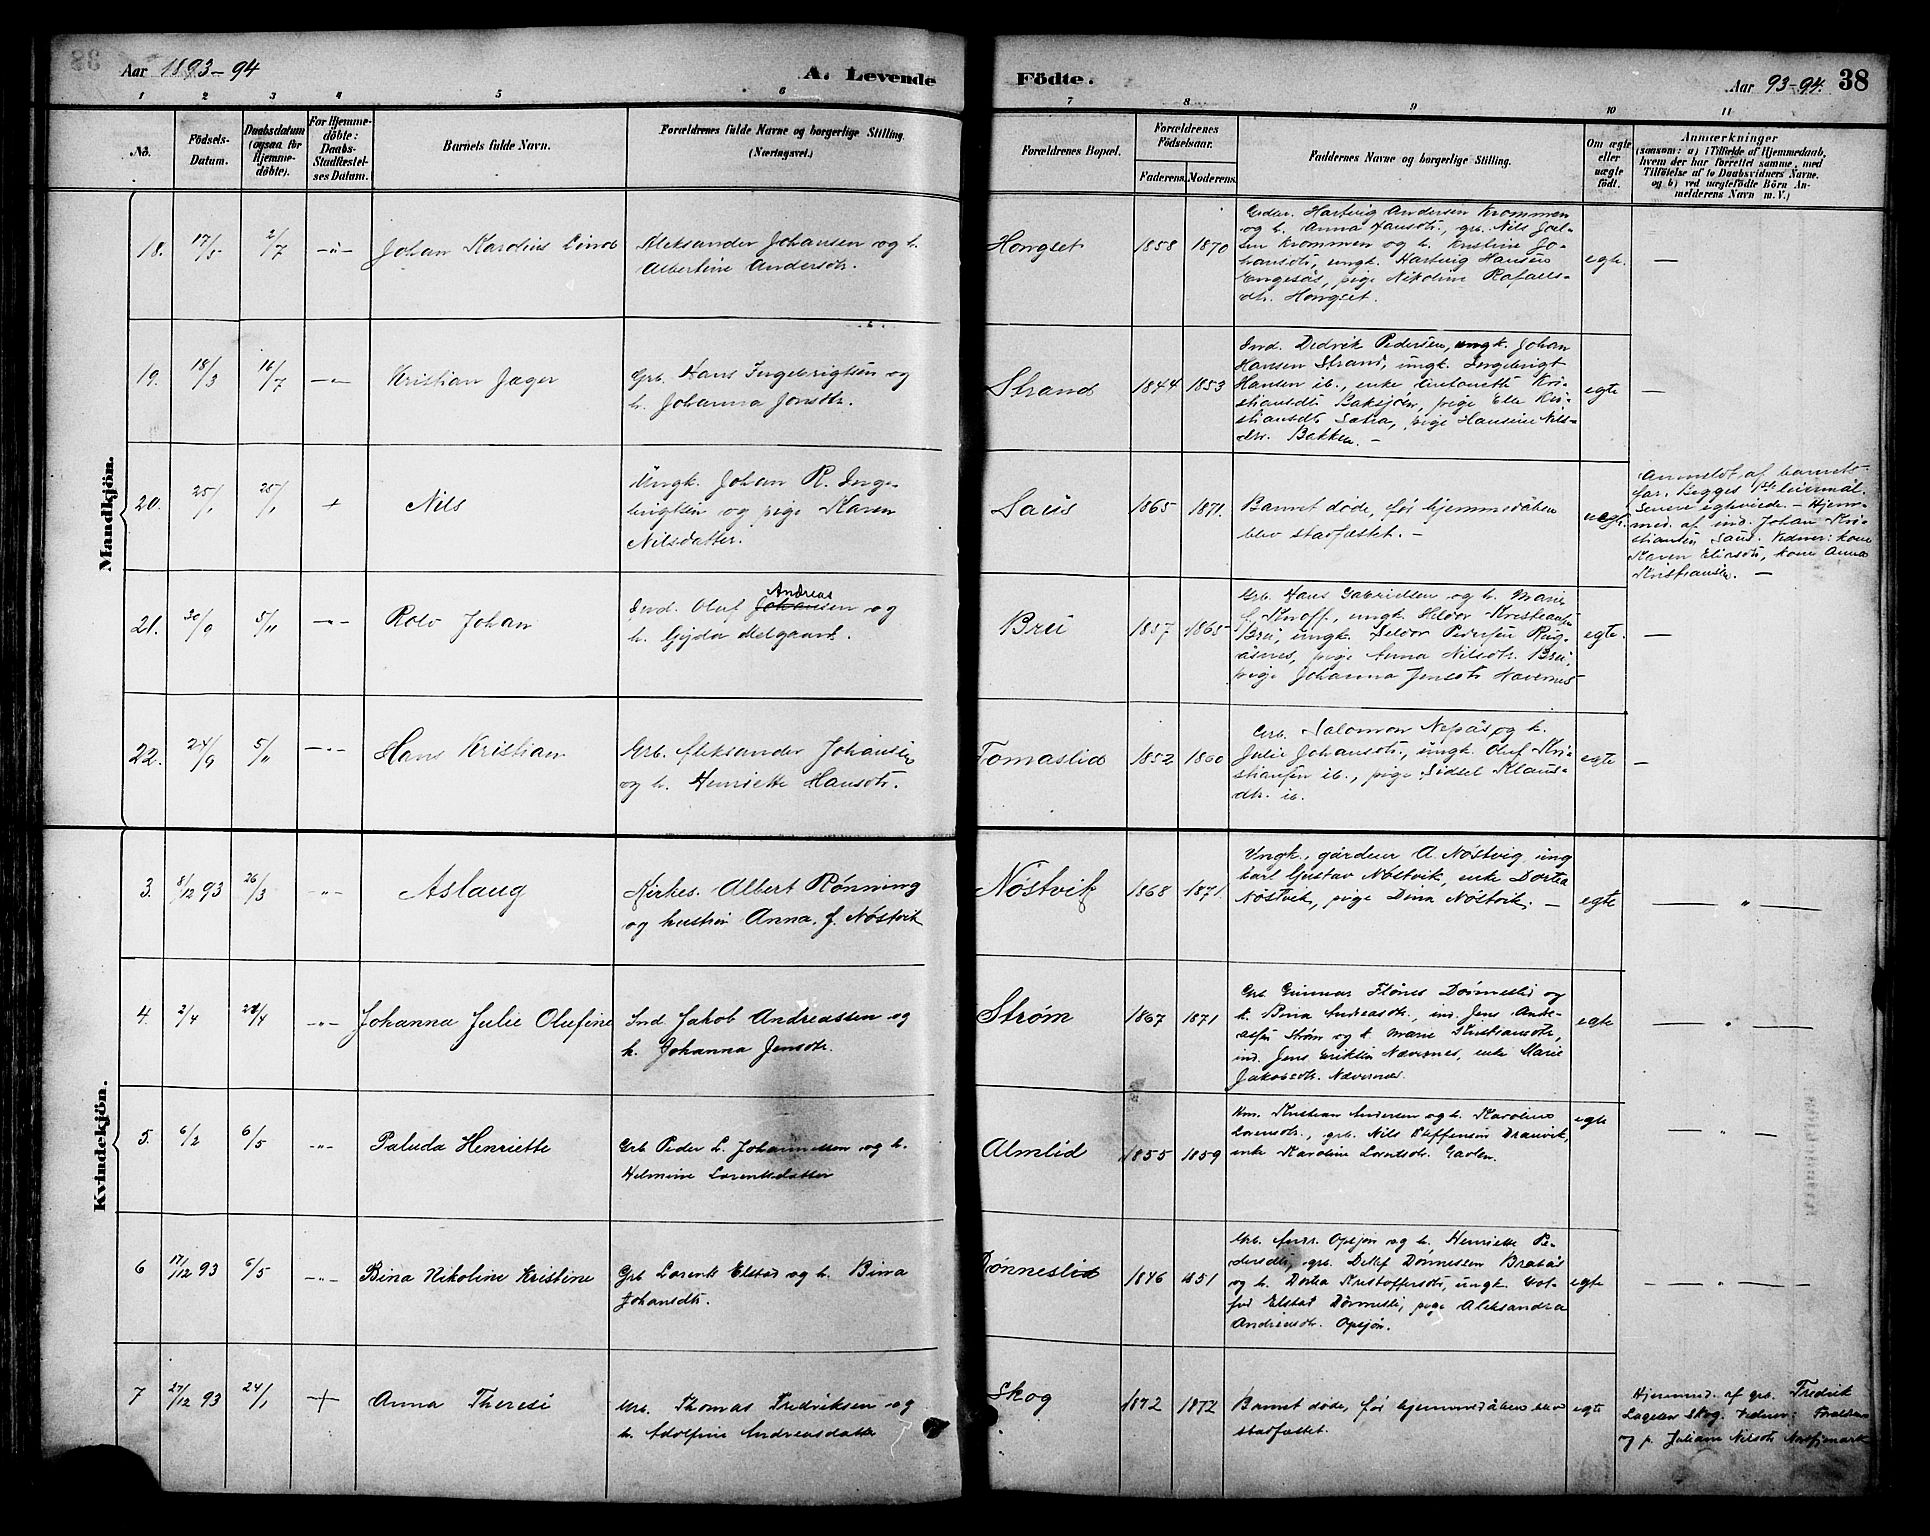 Aar 1893-94
A. Levende
Födte.
Aar 93-94.
38
1 2 3 4 5 6 7 8 9 10 11
No.
Födsels-
Datum.
Daabsdatum
(ogsaa for
Hjemme-
döbte).
For Hjemme-
döbte:
Daabs-
Stadfæstel-
ses Datum.
Barnets fulde Navn.
Forældrenes fulde Navne og borgerlige Stilling.
(Næringsvei.)
Forældrenes Bopæl.
Forældrenes
Födselsaar.
Faderens. Moderens.
Faddernes Navne og borgerlige Stilling.
Om ægte
eller
uægte
födt.
Anmærkninger
(saasom: a) i Tilfælde af Hjemmedaab,
hvem der har forrettet samme, med
Tilföielse af to Daabsvidners Navne.
og b) ved uægtefödte Börn An-
melderens Navn m. V.)
Mandkjön.
18. 17/5 2/7 -"- Johan Kardius Eind
Aleksander Johansen og h.
Albertine Andersdtr.
Hongset 1858 1870
Hartvig Andersen Krommen
og h. Anna Hansdtr, grb. Nils Joel-
sen Krommen og h. Kristine Jo-
hansdtr, ungk. Hartvig Hansen
Engesås, pige Nikoline Rafaels-
dtr. Hongset.
egte. —
19. 18/3 16/7 -"- Kristian Jæger
Grb. Hans Ingebrigtsen og
h. Johanna Jonsdtr.
Strand 1844 1853
Ind. Didrik Pedersen, ungk. Johan
Hansen Strand, ungk. Ingebrigt
Hansen ib., enke Antonette Kri-
stiansdtr Baksjöen, pige Else Kri-
stiansdtr Satra, pige Hansine Nils-
dtr. Bakken. -
egte —
20. 25/1 25/1 + Nils
Ungk. Johan R. Inge-
brigtsen og pige Karen
Nilsdatter.
Saus 1865 1871.
Barnet døde, før hjemmedåben
blev stadfæstet. -
uegt.
Anmeldt af barnets
far. Begges 1ste leiermål.
Senere egteviede. - Hjem-
med. af ind. Johan Kri-
stiansen Saus. Vidner: kone
Karen Eliasdtr, kone Anna
Kristiansen. —
21. 30/9 5/11 -"- Rolv Johan
Andreas
Ind. Oluf Johansen og
h. Gjyda Melgaard.
Brei 1857 1865
Grb. Hans Gabrielsen og h. Marie
f. Throff, ungk. Heldor Kristiansen
Brei, ungk. Seldor Pedersen Reig-
åsnes, pige Anna Nilsdtr. Brei,
pige Johanna Jensdtr Havernes
egte. —
22. 24/9 5/11 -"- Hans Kristian
Grb. Aleksander Johansen
og h. Henriette Hansdtr.
Tomaslid 1852 1860
Grb. Salomon Nepås og h.
Julie Johansdtr., ungk. Oluf Kri-
stiansen ib., pige Sidsel Klaus-
dtr. ib.
egte —
Kvindekjön.
3. 8/12 93 26/3 -"- Aslaug
Kirkes. Albert Rønning
og hustru Anna, f. Nøstvik
Nöstvik 1868 1871.
Ungk., gårdeier A. Nøstvig, ung
karl Gustav Nøstvik, enke Dortea
Nöstvik, pige Dina Nöstvik. —
egte — " —
4. 2/4 28/4 -"- Johanna Julie Olufine
Ind. Jakob Andreassen og
h. Johanna Jensdtr.
Strøm 1867 1871
Grb. Gunnar Flönes Dønneslid og
h. Bina Andreasdtr., ind. Jens Andre-
assen Strøm og h. Marie Kristiansdtr,
ind. Jens Eriksen Nævernes, enke Marie
Jakobsdtr. Nævernes.
egte — " —
5. 6/2 6/5 -"- Paluda Henriette
Grb Peder L. Johannessen og h.
Helmine Lorentsdatter
Almlid 1855 1859
Km. Kristian Andersen og h. Karoline
Lorensdtr., grb. Nils Steffensen Dranvik,
enke Karoline Lorentsdtr. Gaolen.
egte — " —
6 17/12 93 6/5 -"- Bina Nikoline Kristine
Grb Lorents Elstad og h. Bina
Johansdtr.
Dönneslid 1846 1851
Grb. Andr. Opsjøn og h. Henriette Pe-
dersdtr, grb. Detlef Dønnessen Brabås
og h. Dortea Kristoffersdtr, ungk. Got-
fred Elstad Dönnesli, pige Aleksandra
Andreasdtr. Opsjøn.
egte — " —
7 27/12 93 24/1 + Anna Theresi
Grb. Thomas Fredriksen og
h. Adolfine Andreasdatter
Skog 1872 1872
Barnet døde, før hjemmedåben blev
stadfæstet.
egte
Hjemmed. af grb. Fredrik
Lagesen Skog. Vidner: Foreldrene
og p. Juliane Nilsdtr Nordfjemark